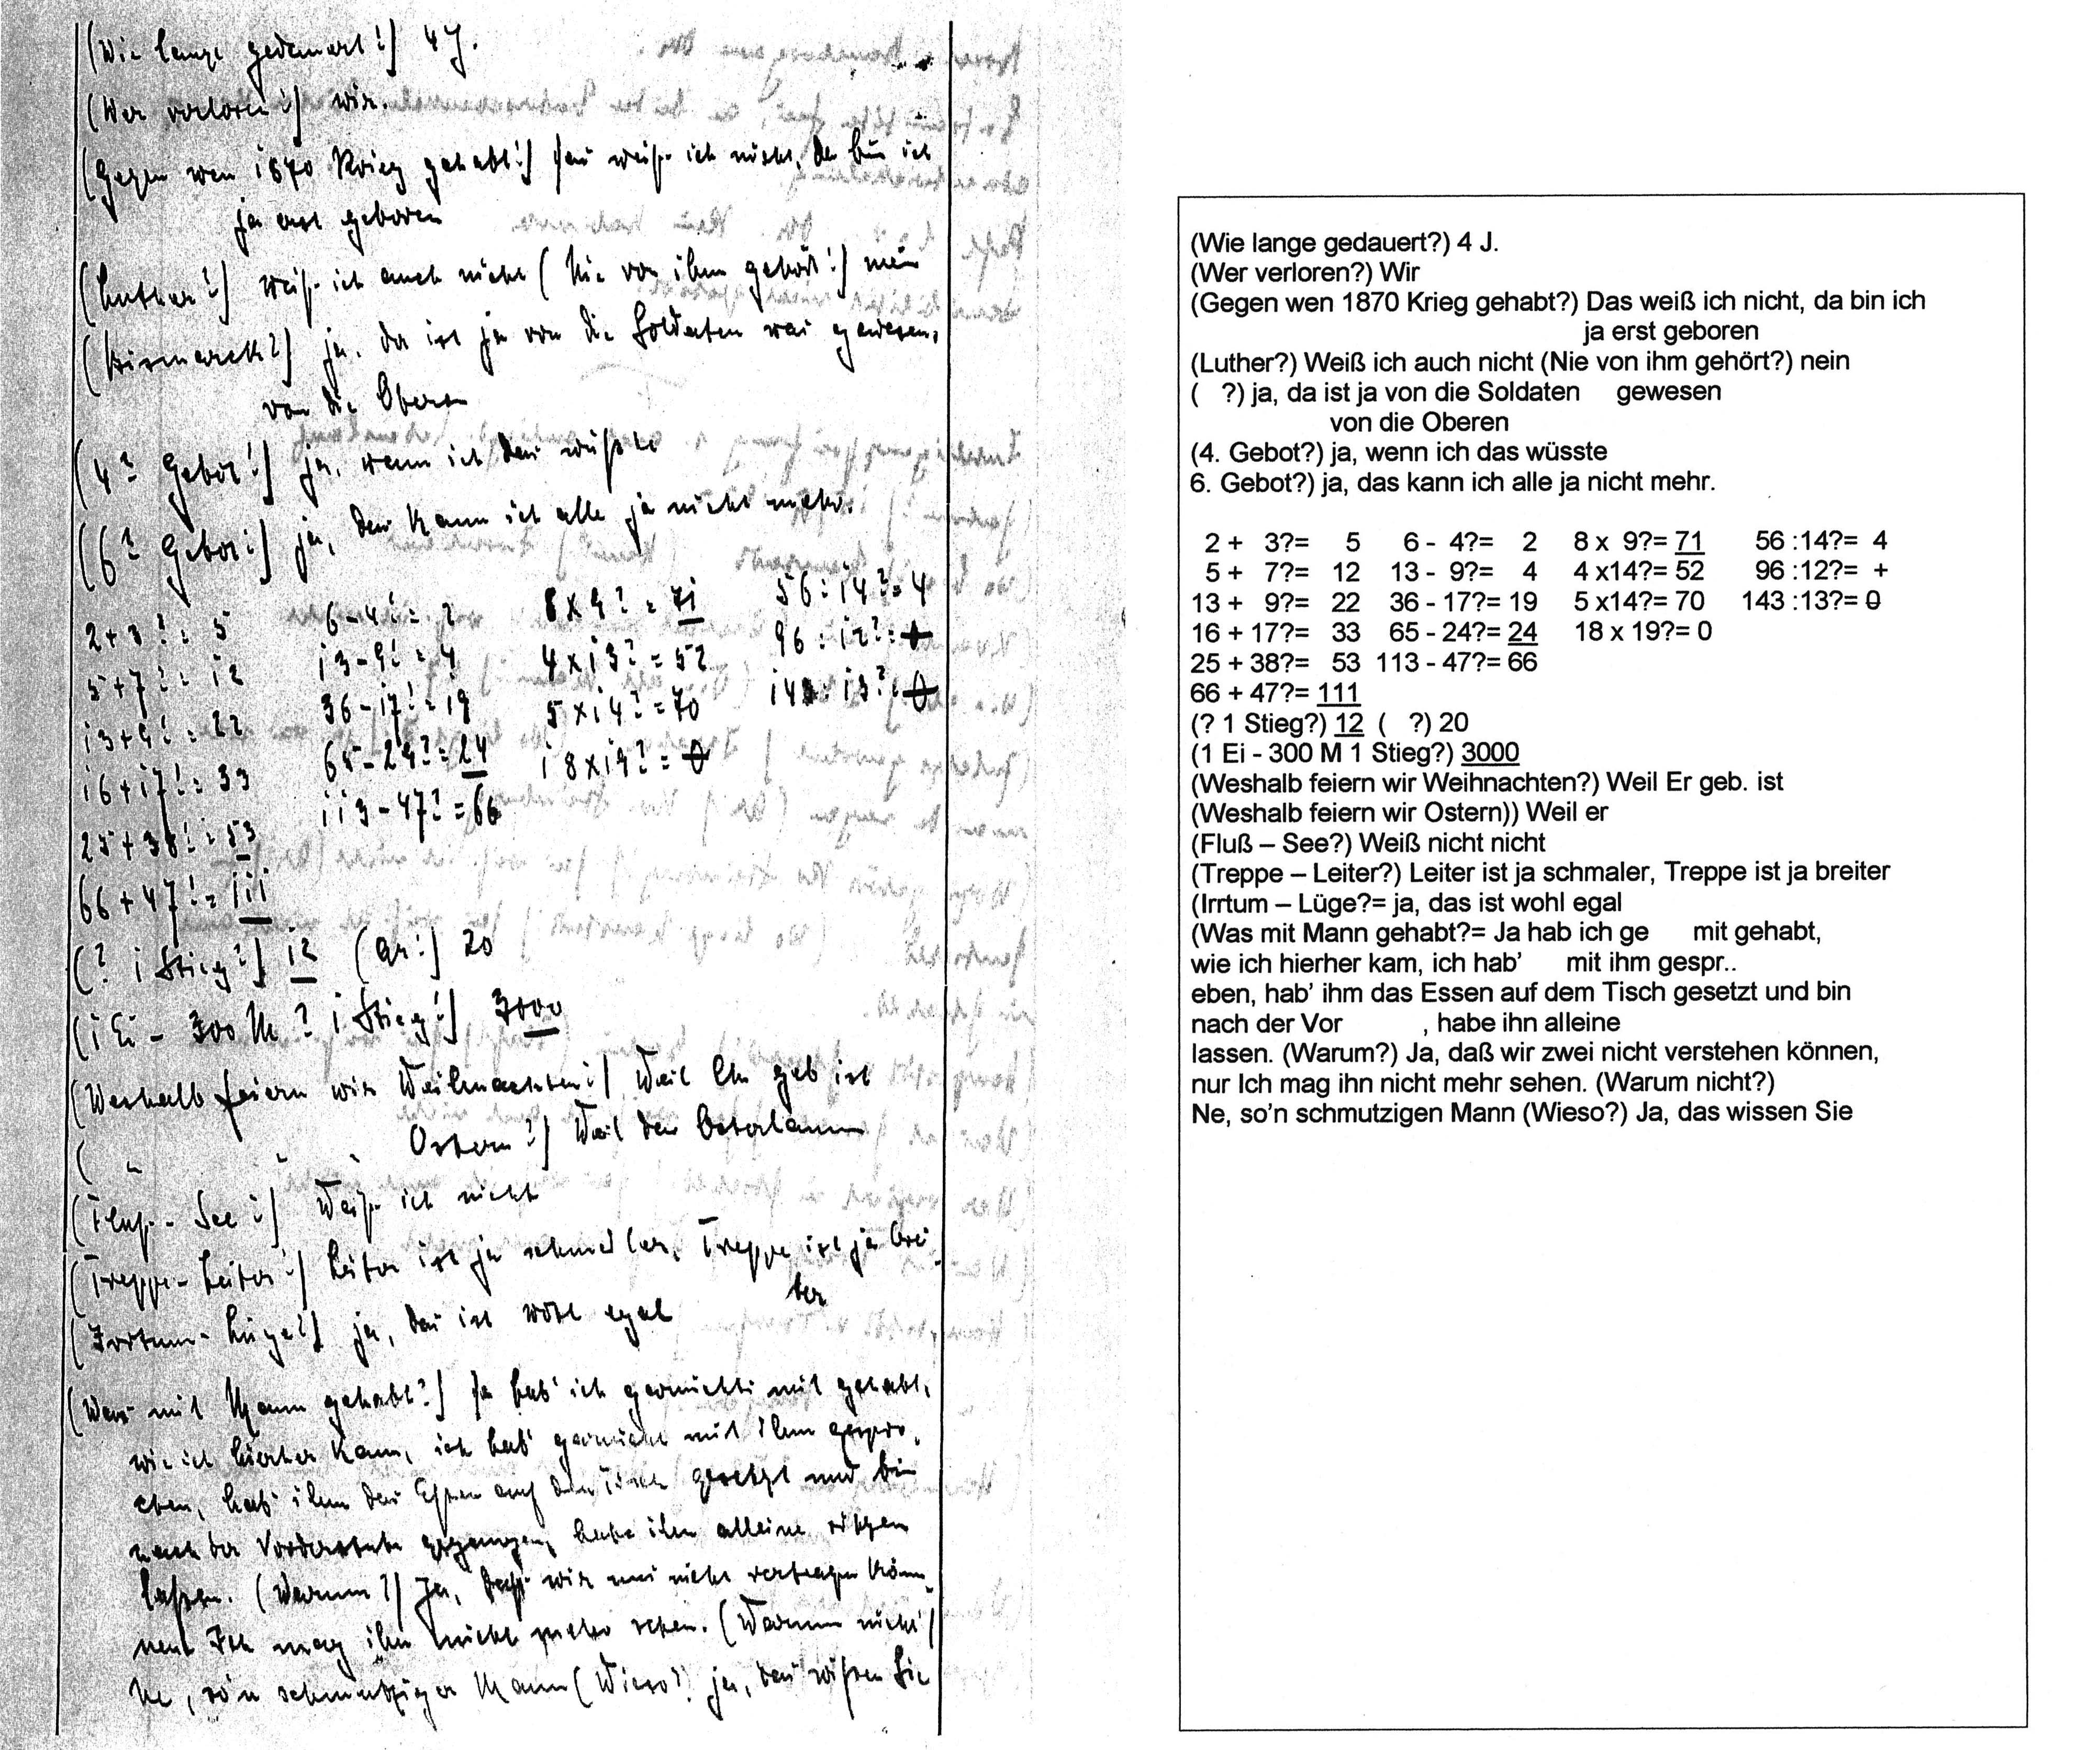 (Wie lange gedauert?) 4 J.
(Wer verloren?) wir.
(Gegen wen 1870 Krieg gehabt?) Das weiß ich nicht, da bin ich
ja erst geboren
(Luther?) weiß ich auch nicht (Nie von ihm gehört?) nein
(Bismarck?) ja, da ist ja von die Soldaten gewesen,
von die Obern
(4? Gebot?) ja, wenn ich das wüßte
(6? Gebot?) ja, das kann ich alle ja nicht mehr.
2+3?= 5 6-4?= 2 8x9?= 71 56:14?=4
5+7?= 12 13-9?= 4 4x13?=52 96:12?=
13+9?= 22 36-17?=19 5x14?=70 143:13?=0
16+17?= 33 65-24?=24 18x19?=0
25+38?=53 113-47?=66
66+47?=111
(? 1 Stieg?) 12 (Gr?) 20
(1 Ei - 300 M ? 1 Stieg?) 3000
(Weshalb feiern wir Weihnachten?) Weil Er geb ist
( " " " Ostern?) Weil der Osterlamm
(Fluß - See?) Weiß ich nicht
(Treppe - Leiter?) Leiter ist ja schmaler, Treppe ist ja brei-
ter
(Irrtum - Lüge?) ja, das ist wohl egal
(Was mit Mann gehabt?) Ja hab' ich garnichts mit gehabt,
wie ich hierher kam, ich hab' garnicht mit ihm gespro-
chen, hab' ihm das Essen auf den Tisch gesetzt und bin
nach der Vorderstube gegangen, habe ihn alleine sitzen
lassen. (Warum?) Ja, daß wir uns nicht vertragen kön-
nen. Ich mag ihn nicht mehr sehen. (Warum nicht?)
Ne, so'n schmutziger Mann (Wieso?) ja, das wissen Sie
(Wie lange gedauert?) 4 J.
(Wer verloren?) Wir
(Gegen wen 1870 Krieg gehabt?) Das weiß ich nicht, da bin ich
ja erst geboren
(Luther?) Weiß ich auch nicht (Nie von ihm gehört?) nein
( ?) ja, da ist ja von die Soldaten gewesen
von die Oberen
(4. Gebot?) ja, wenn ich das wüsste
6. Gebot?) ja, das kann ich alle ja nicht mehr.
2 + 3?= 5 6 - 4?= 2 8 x 9?= 71 56 :14?= 4
5 + 7?= 12 13 - 9?= 4 4 x14?= 52 96 :12?= +
13 + 9?= 22 36 - 17?= 19 5 x14?= 70 143 :13?= 0
16 + 17?= 33 65 - 24?= 24 18 x 19?= 0
25 + 38?= 53 113 - 47?= 66
66 + 47?= 111
(? 1 Stieg?) 12 ( ?) 20
(1 Ei - 300 M 1 Stieg?) 3000
(Weshalb feiern wir Weihnachten?) Weil Er geb. ist
(Weshalb feiern wir Ostern)) Weil er
(Fluß – See?) Weiß nicht nicht
(Treppe – Leiter?) Leiter ist ja schmaler, Treppe ist ja breiter
(Irrtum – Lüge?= ja, das ist wohl egal
(Was mit Mann gehabt?= Ja hab ich ge mit gehabt,
wie ich hierher kam, ich hab' mit ihm gespr..
eben, hab' ihm das Essen auf dem Tisch gesetzt und bin
nach der Vor , habe ihn alleine
lassen. (Warum?) Ja, daß wir zwei nicht verstehen können,
nur Ich mag ihn nicht mehr sehen. (Warum nicht?)
Ne, so'n schmutzigen Mann (Wieso?) Ja, das wissen Sie